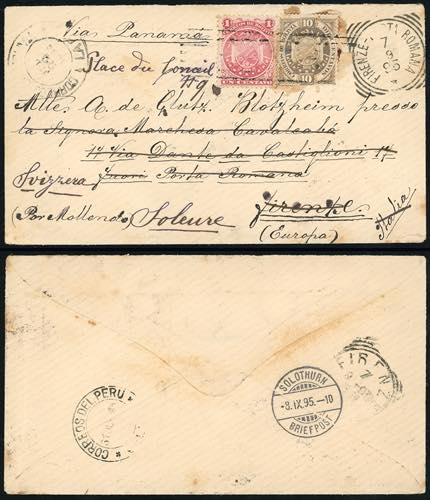 Via Panamá
Place du Conseil
79
Mlle A. de Glutz Blotzheim presso
la Signora Marchesa Cavalcabó
17 Via Dante da Castiglioni 17
Svizzera
fuori Porta Romana
(Por Mollendo) Soleure
Firenze
(Europa)
Italia
1
1
UN CENTAVO
10
10
FIRENZE
ROMANA
LA
CORREOS DEL PERU
SOLOTHURN
-8.IX.95.-10
BRIEFPOST
FIRENZ